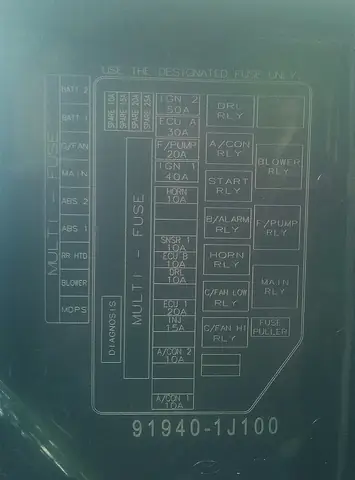 USE THE DESIGNATED FUSE ONLY
MULTI - FUSE
BATT 2
BATT 1
C/FAN
MAIN
ABS 2
ABS 1
RR HTD
BLOWER
MDPS
SPARE 10A
SPARE 15A
SPARE 20A
SPARE 25A
MULTI - FUSE
DIAGNOSIS
IGN 2
50A
ECU A
30A
F/PUMP
20A
IGN 1
40A
HORN
10A
SNSR 1
10A
ECU B
10A
DRL
10A
ECU 1
20A
INJ
15A
A/CON 2
10A
A/CON 1
10A
DRL
RLY
A/CON
RLY
START
RLY
B/ALARM
RLY
HORN
RLY
C/FAN LOW
RLY
C/FAN HI
RLY
BLOWER
RLY
F/PUMP
RLY
MAIN
RLY
FUSE
PULLER
91940-1J100